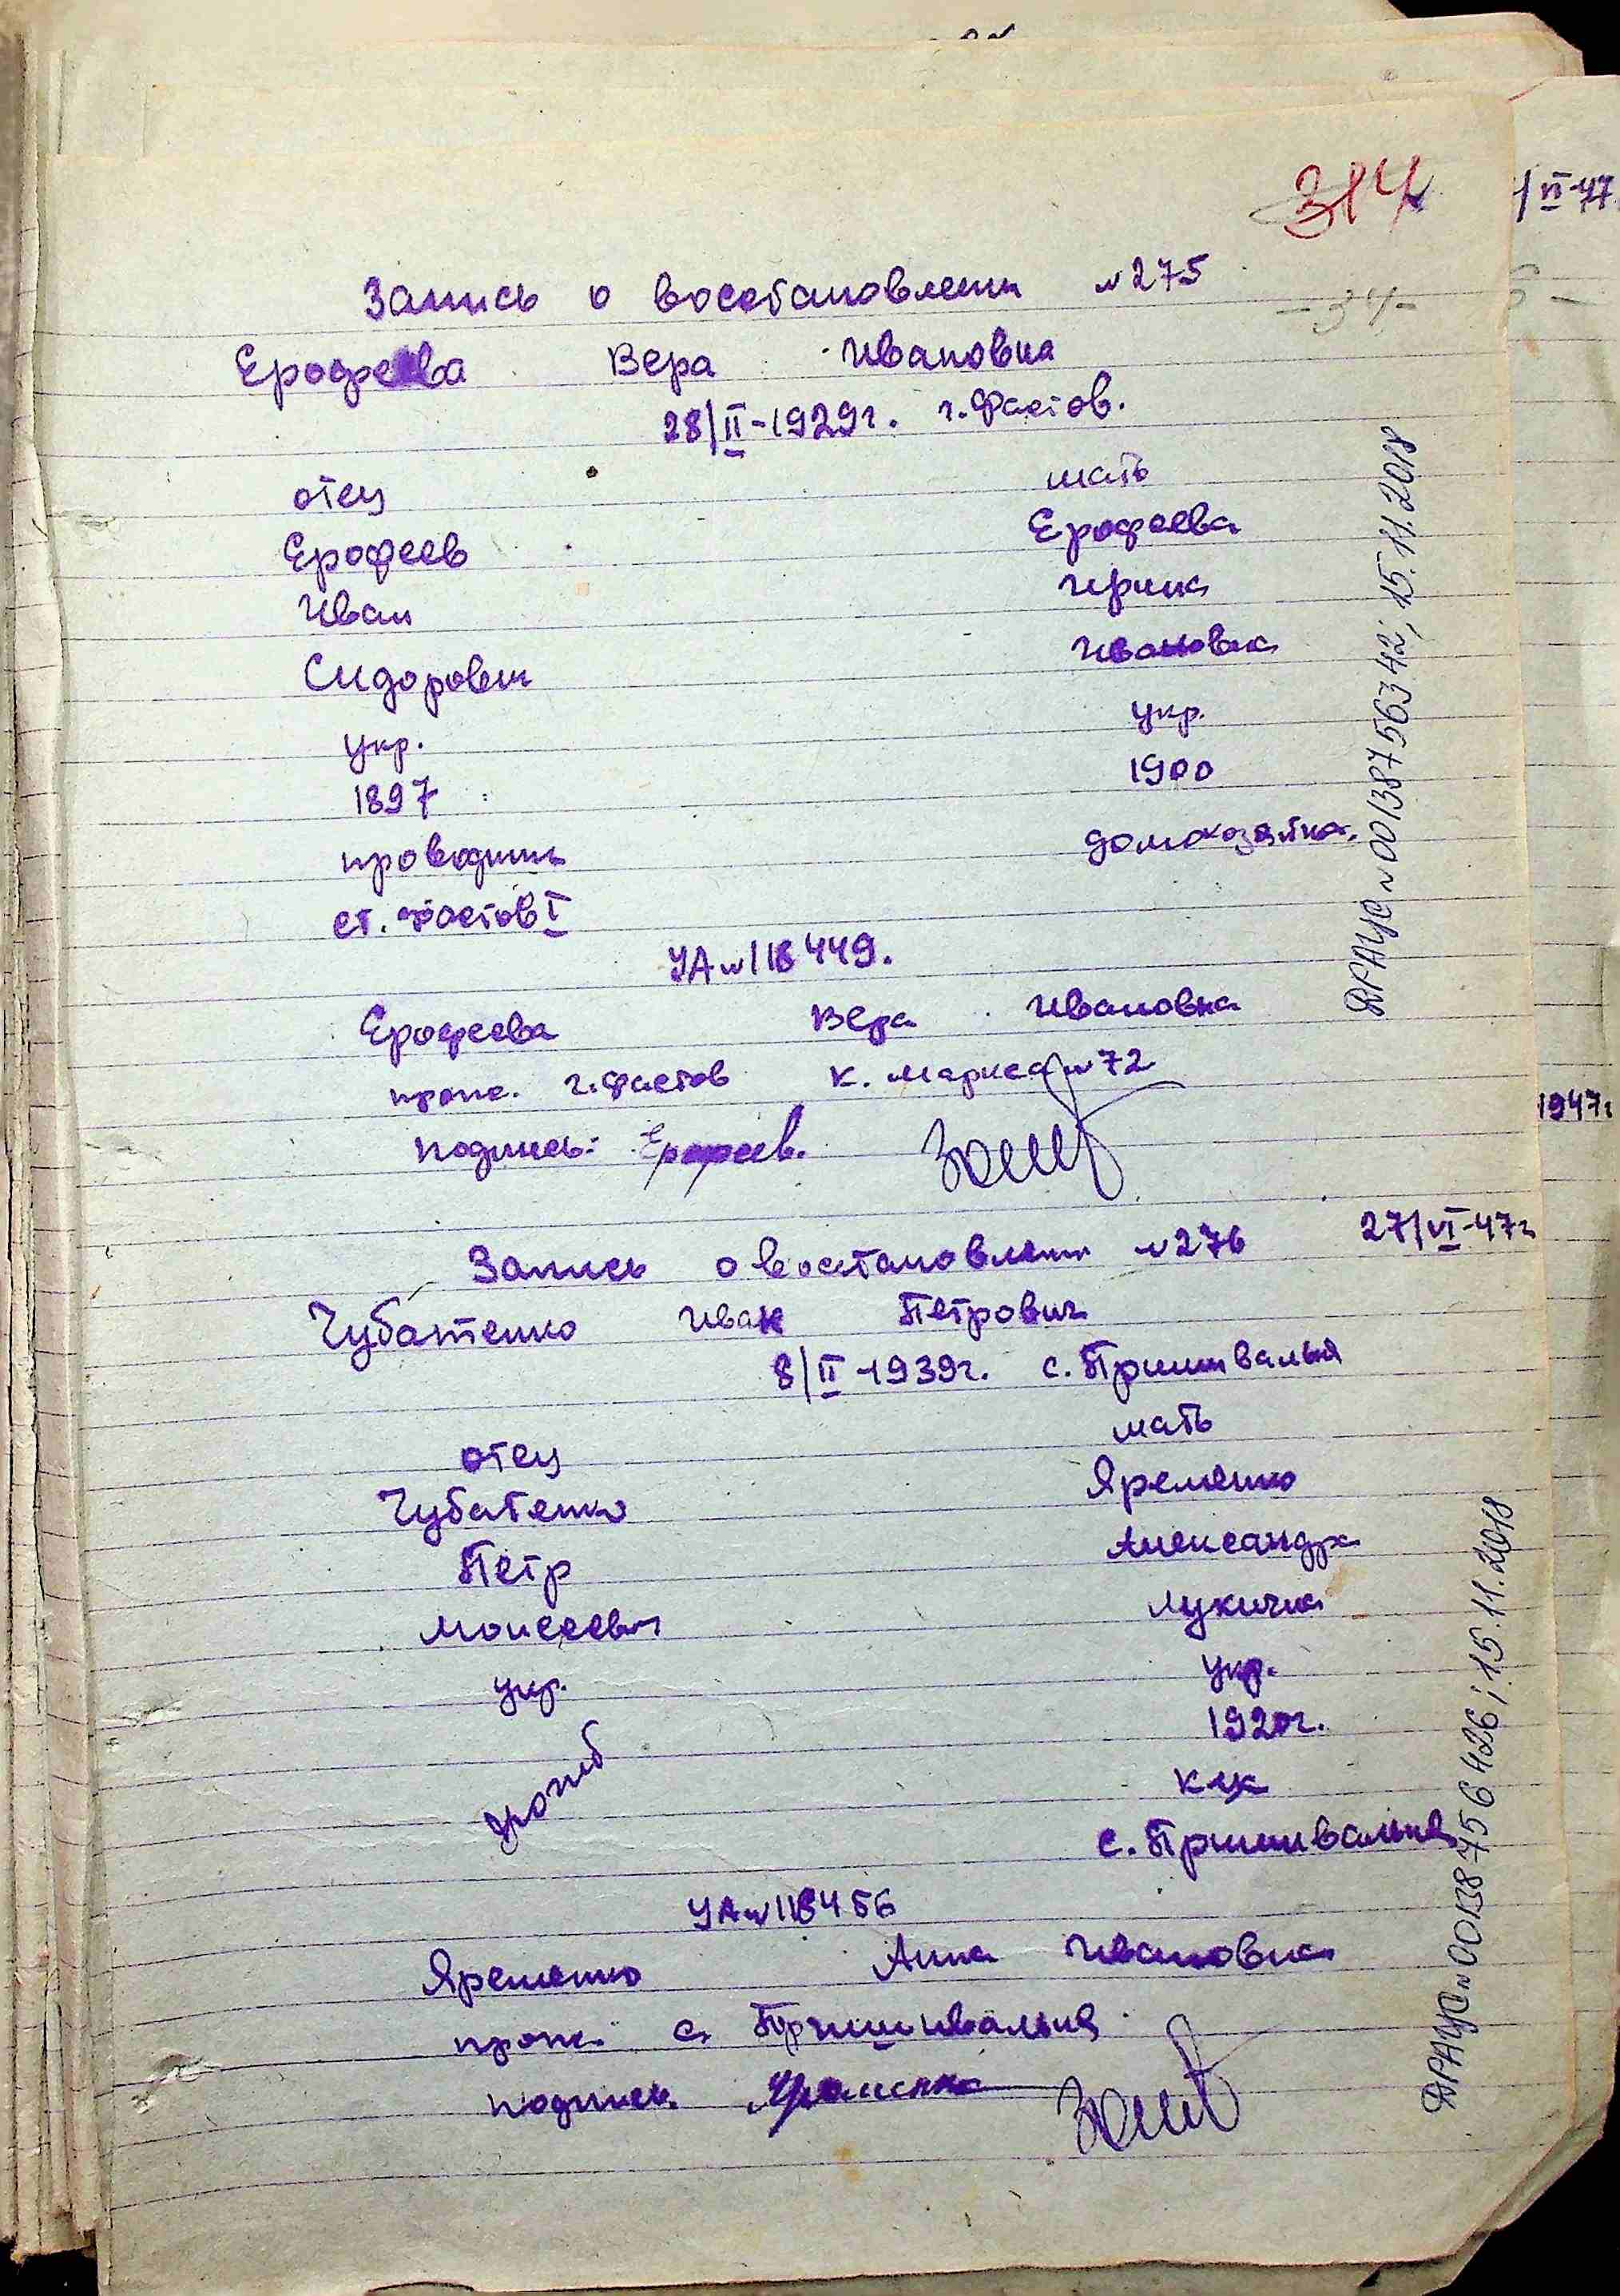 314
/VI-47
Запись о восстановлении №275
-34-
Ерофеева Вера Ивановна
28/II-1929г. г. Фастов.
отец мать
Ерофеев Ерофеева
Иван Ирина
Сидорович Ивановна
укр. укр.
1897 1900
проводник домохозяйка.
ст. Фастов I
УА №118449.
Ерофеева Вера Ивановна
прож. г. Фастов К. Маркса №72
подпись: Ерофеев.
ДРАЦС №00138756342; 15.11.2018
1947г
27/VI-47г
Запись о восстановлении №276
Чубатенко Иван Петрович
8/II-1939г. с. Пришивальня
отец мать
Чубатенко Яременко
Петр Александра
Моисеевич Лукична
укр. укр.
погиб 1920г.
к-к
с. Пришивальня
УА №118456
Яременко Анна Ивановна
прож. с. Пришивальня
подпись. Яременко
ДРАЦС №00138756426; 15.11.2018